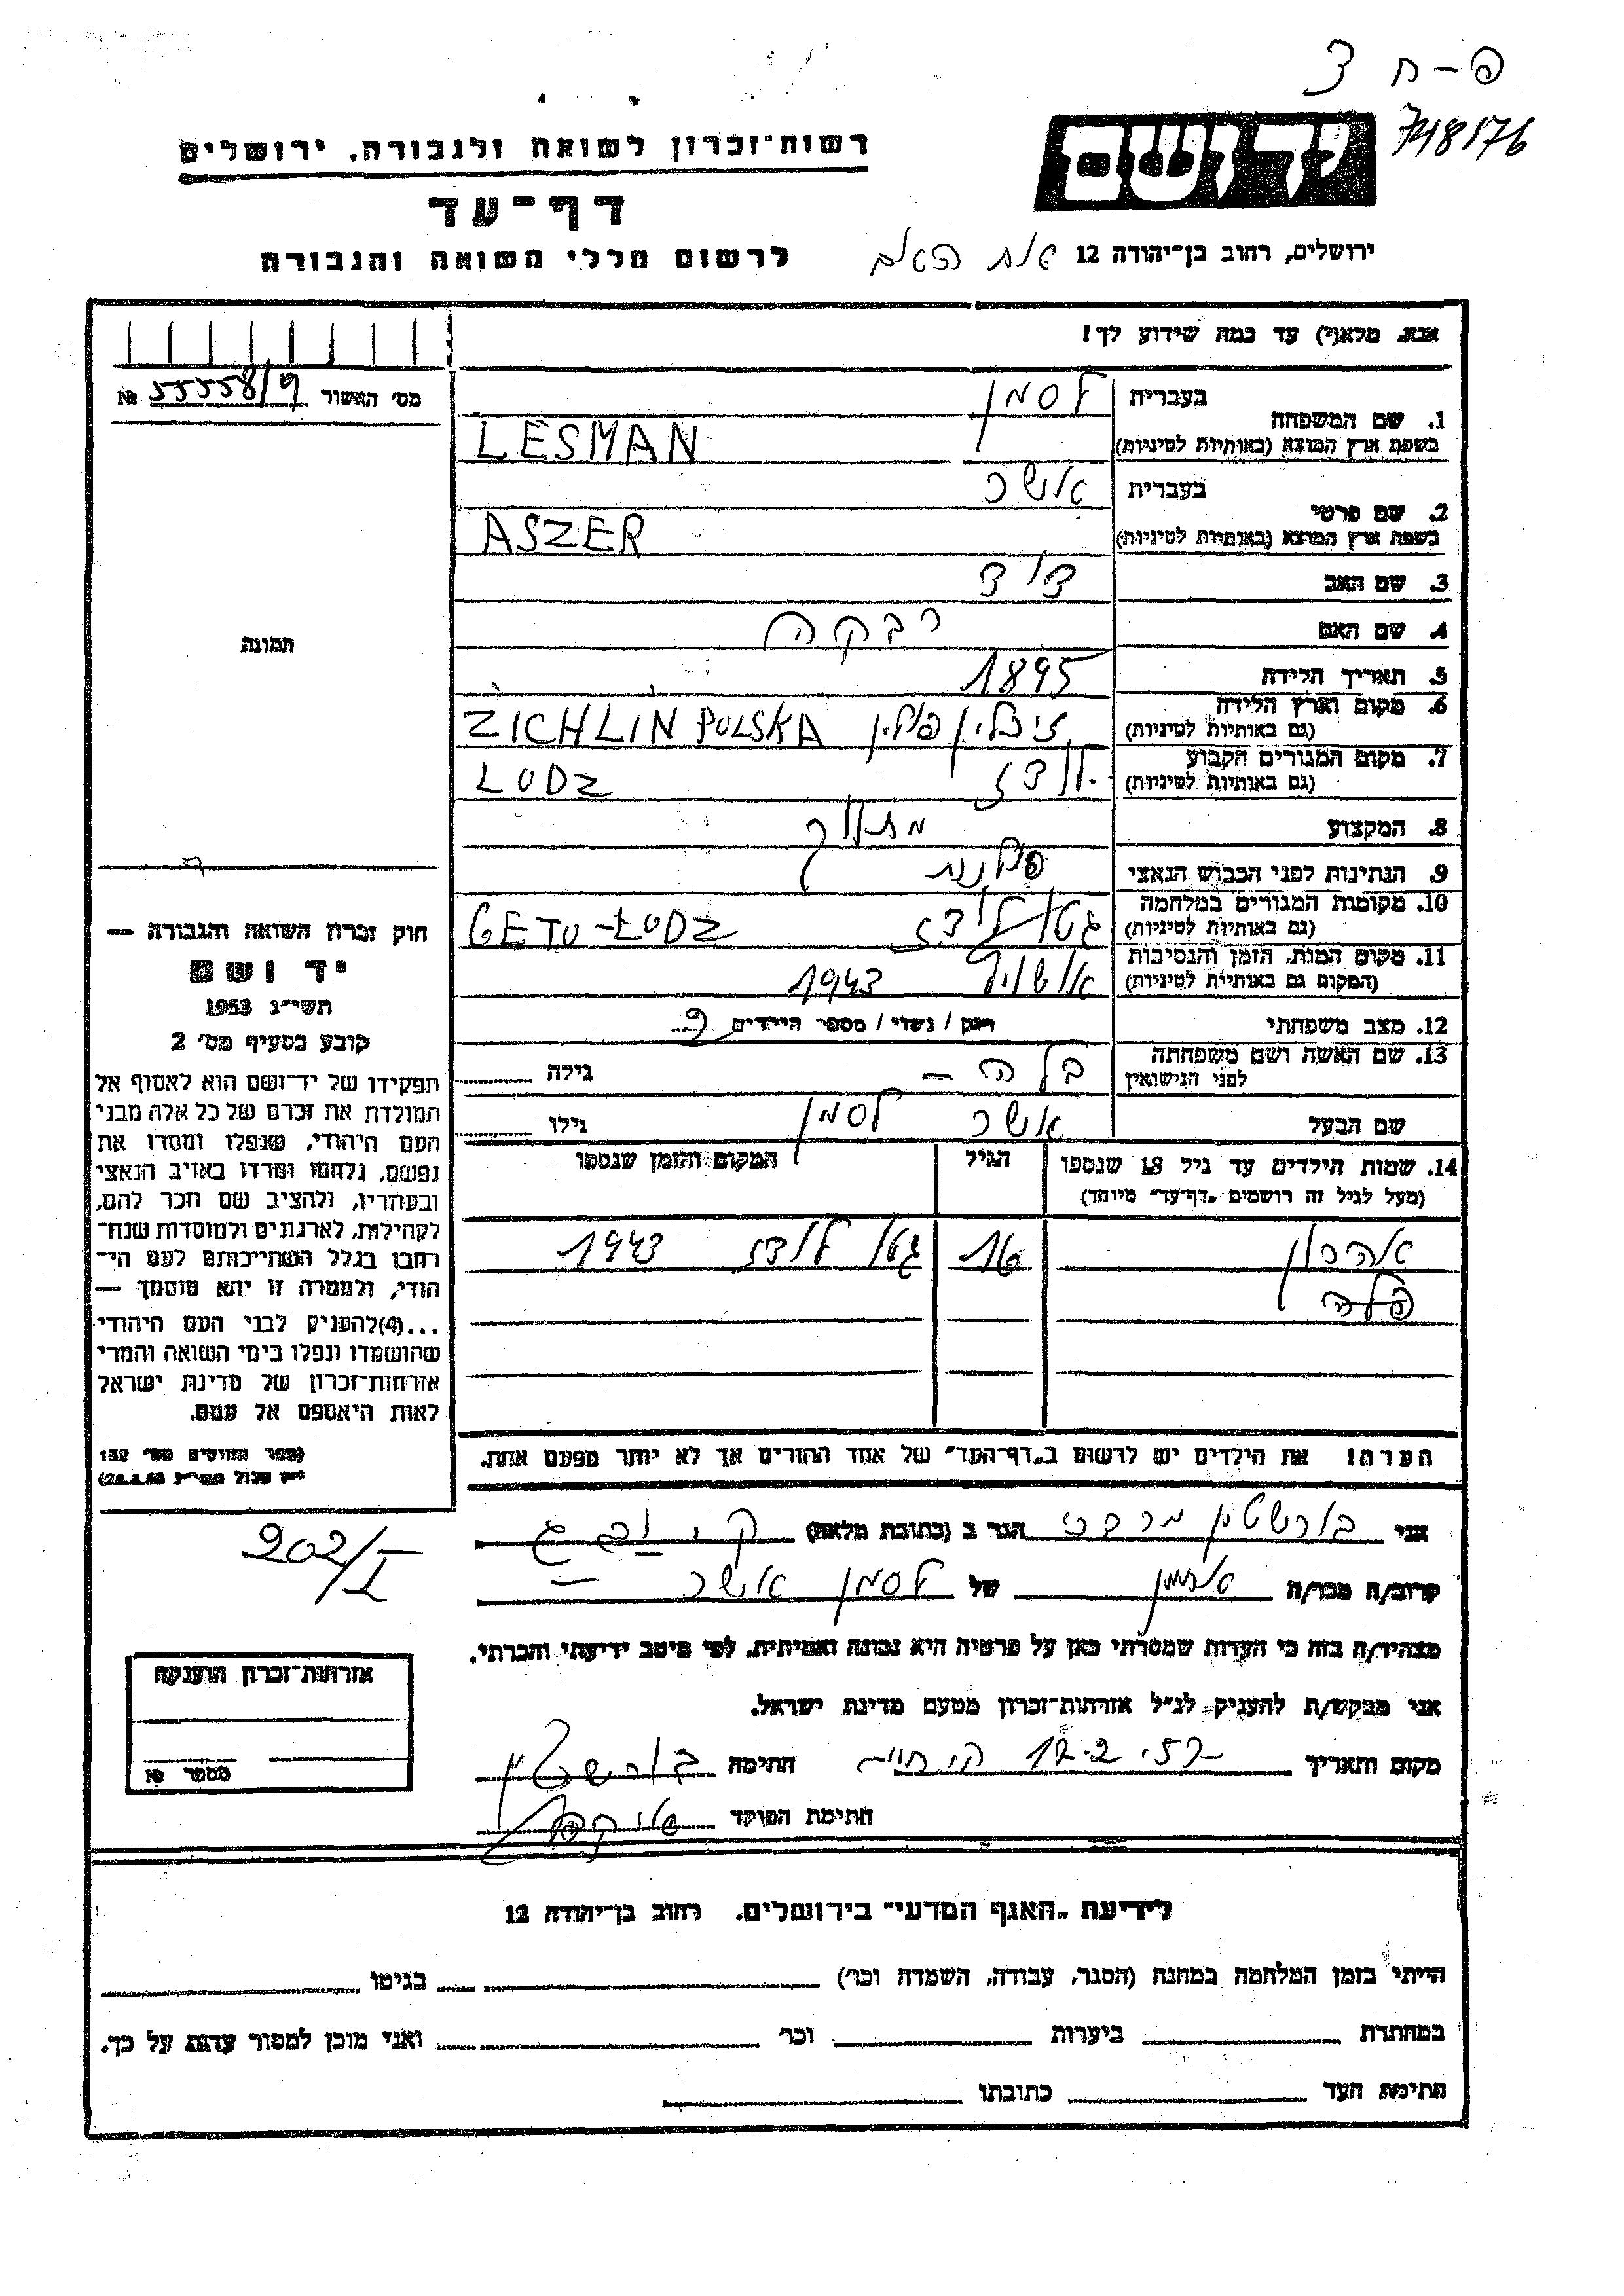 פ-ח 3
748176
יד ושם
רשות־זכרון לשואה ולגבורה, ירושלים
דף־עד
לרשום חללי השואה והגבורה
ירושלים, רחוב בן־יהודה 12
אנא, מלא(י) עד כמה שידוע לך!
מס׳ האשור 55558/9 №
1. שם המשפחה בעברית לסמן
בשפת ארץ המוצא (באותיות לטיניות) LESMAN
2. שם פרטי בעברית אושר
בשפת ארץ המוצא (באותיות לטיניות) ASZER
3. שם האב דוד
4. שם האם רבקה
5. תאריך הלידה 1895
6. מקום וארץ הלידה
(גם באותיות לטיניות) זיכלין פולין ZICHLIN POLSKA
7. מקום המגורים הקבוע
(גם באותיות לטיניות) לודז LODZ
8. המקצוע מתווך
9. הנתינות לפני הכבוש הנאצי פולנית
10. מקומות המגורים במלחמה
(גם באותיות לטיניות) גטו לודז GETO-ŁODZ
11. מקום המות, הזמן והנסיבות
(המקום גם באותיות לטיניות) אושויץ 1943
12. מצב משפחתי רווק / נשוי / מספר הילדים
13. שם האשה ושם משפחתה
לפני הנישואין בלה - גילה
שם הבעל אושר לסמן גילו
14. שמות הילדים עד גיל 18 שנספו הגיל המקום והזמן שנספו
(מעל לגיל זה רושמים „דף־עד״ מיוחד)
אהרון 16 גטו לודז 1943
פלה
הערה! את הילדים יש לרשום ב„דף־העד״ של אחד ההורים אך לא יותר מפעם אחת.
תמונה
חוק זכרון השואה והגבורה —
יד ושם
תשי״ג 1953
קובע בסעיף מס׳ 2
תפקידו של יד־ושם הוא לאסוף אל
המולדת את זכרם של כל אלה מבני
העם היהודי, שנפלו ומסרו את
נפשם, נלחמו ומרדו באויב הנאצי
ובעוזריו, ולהציב שם וזכר להם,
לקהילות, לארגונים ולמוסדות שנח־
רבו בגלל השתייכותם לעם הי־
הודי, ולמטרה זו יהא מוסמך —
...(4)להעניק לבני העם היהודי
שהושמדו ונפלו בימי השואה והמרי
אזרחות־זכרון של מדינת ישראל
לאות היאספם אל עמם.
(ספר החוקים מס׳ 132
י״ז אלול תשי״ג 28.8.53)
202/I
אני בורשטין הגר ב (כתובת מלאה)
קרוב/ה מכר/ה של לסמן אושר -
מצהיר/ה בזה כי העדות שמסרתי כאן על פרטיה היא נכונה ואמיתית, לפי מיטב ידיעתי והכרתי.
אני מבקש/ת להעניק לנ״ל אזרחות־זכרון מטעם מדינת ישראל.
מקום ותאריך 12.2.57 חתימה בורשטין
חתימת הפוקד
אזרחות־זכרון הוענקה
מספר №
לידיעת „האגף המדעי״ בירושלים, רחוב בן־יהודה 12
הייתי בזמן המלחמה במחנה (הסגר, עבודה, השמדה וכר׳) בגיטו
במחתרת ביערות וכר׳ ואני מוכן למסור עדות על כך.
חתימת העד כתובתו